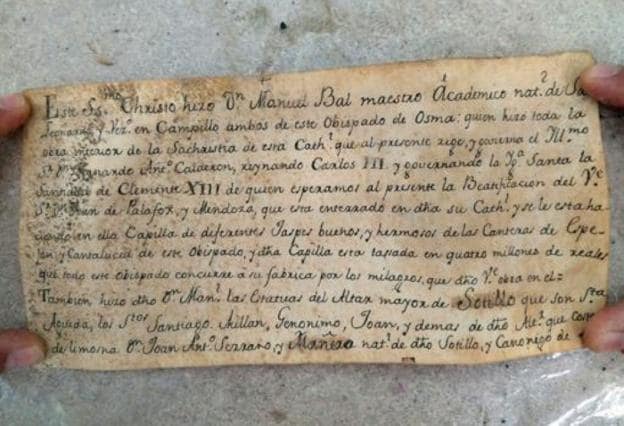 Este Ss.mo Christo hizo Dn. Manuel Bal maestro Académico nat.l de Sa
Leonardo y Vez.o en Campillo ambos de este Obispado de Osma: quien hizo toda la
obra interior de la Sachristia de esta Cath.l que al presente rige, y govierna el Ill.mo
Sr. Dn. Bernardo Ant.o Calderon, reynando Carlos III. y governando la Yg.a Santa la
Santidad de Clemente XIII de quien esperamos al presente la Beatificacion del V.e
Sr. Dn. Juan de Palafox, y Mendoza, que esta enterrado en dha su Cath.l y se le esta ha
ciendo en ella Capilla de diferentes Jaspes buenos, y hermosos de las Canteras de Espe
jon y Cantalucia de este Obispado, y dha Capilla esta tasada en quatro millones de reales
que todo este Obispado concurre a su fabrica por los milagros, que dho V.e obra en el=
Tambien hizo dho Dn. Man.l las Estatuas del Altar mayor de Sotillo que son Sta
Agueda, los Stos Santiago, Millan, Geronimo, Joan, y demas de dho Alt.r que
de limosna Dn. Joan Ant.o Serrano, y Mañero nat.l de dho Sotillo, y Canonigo de